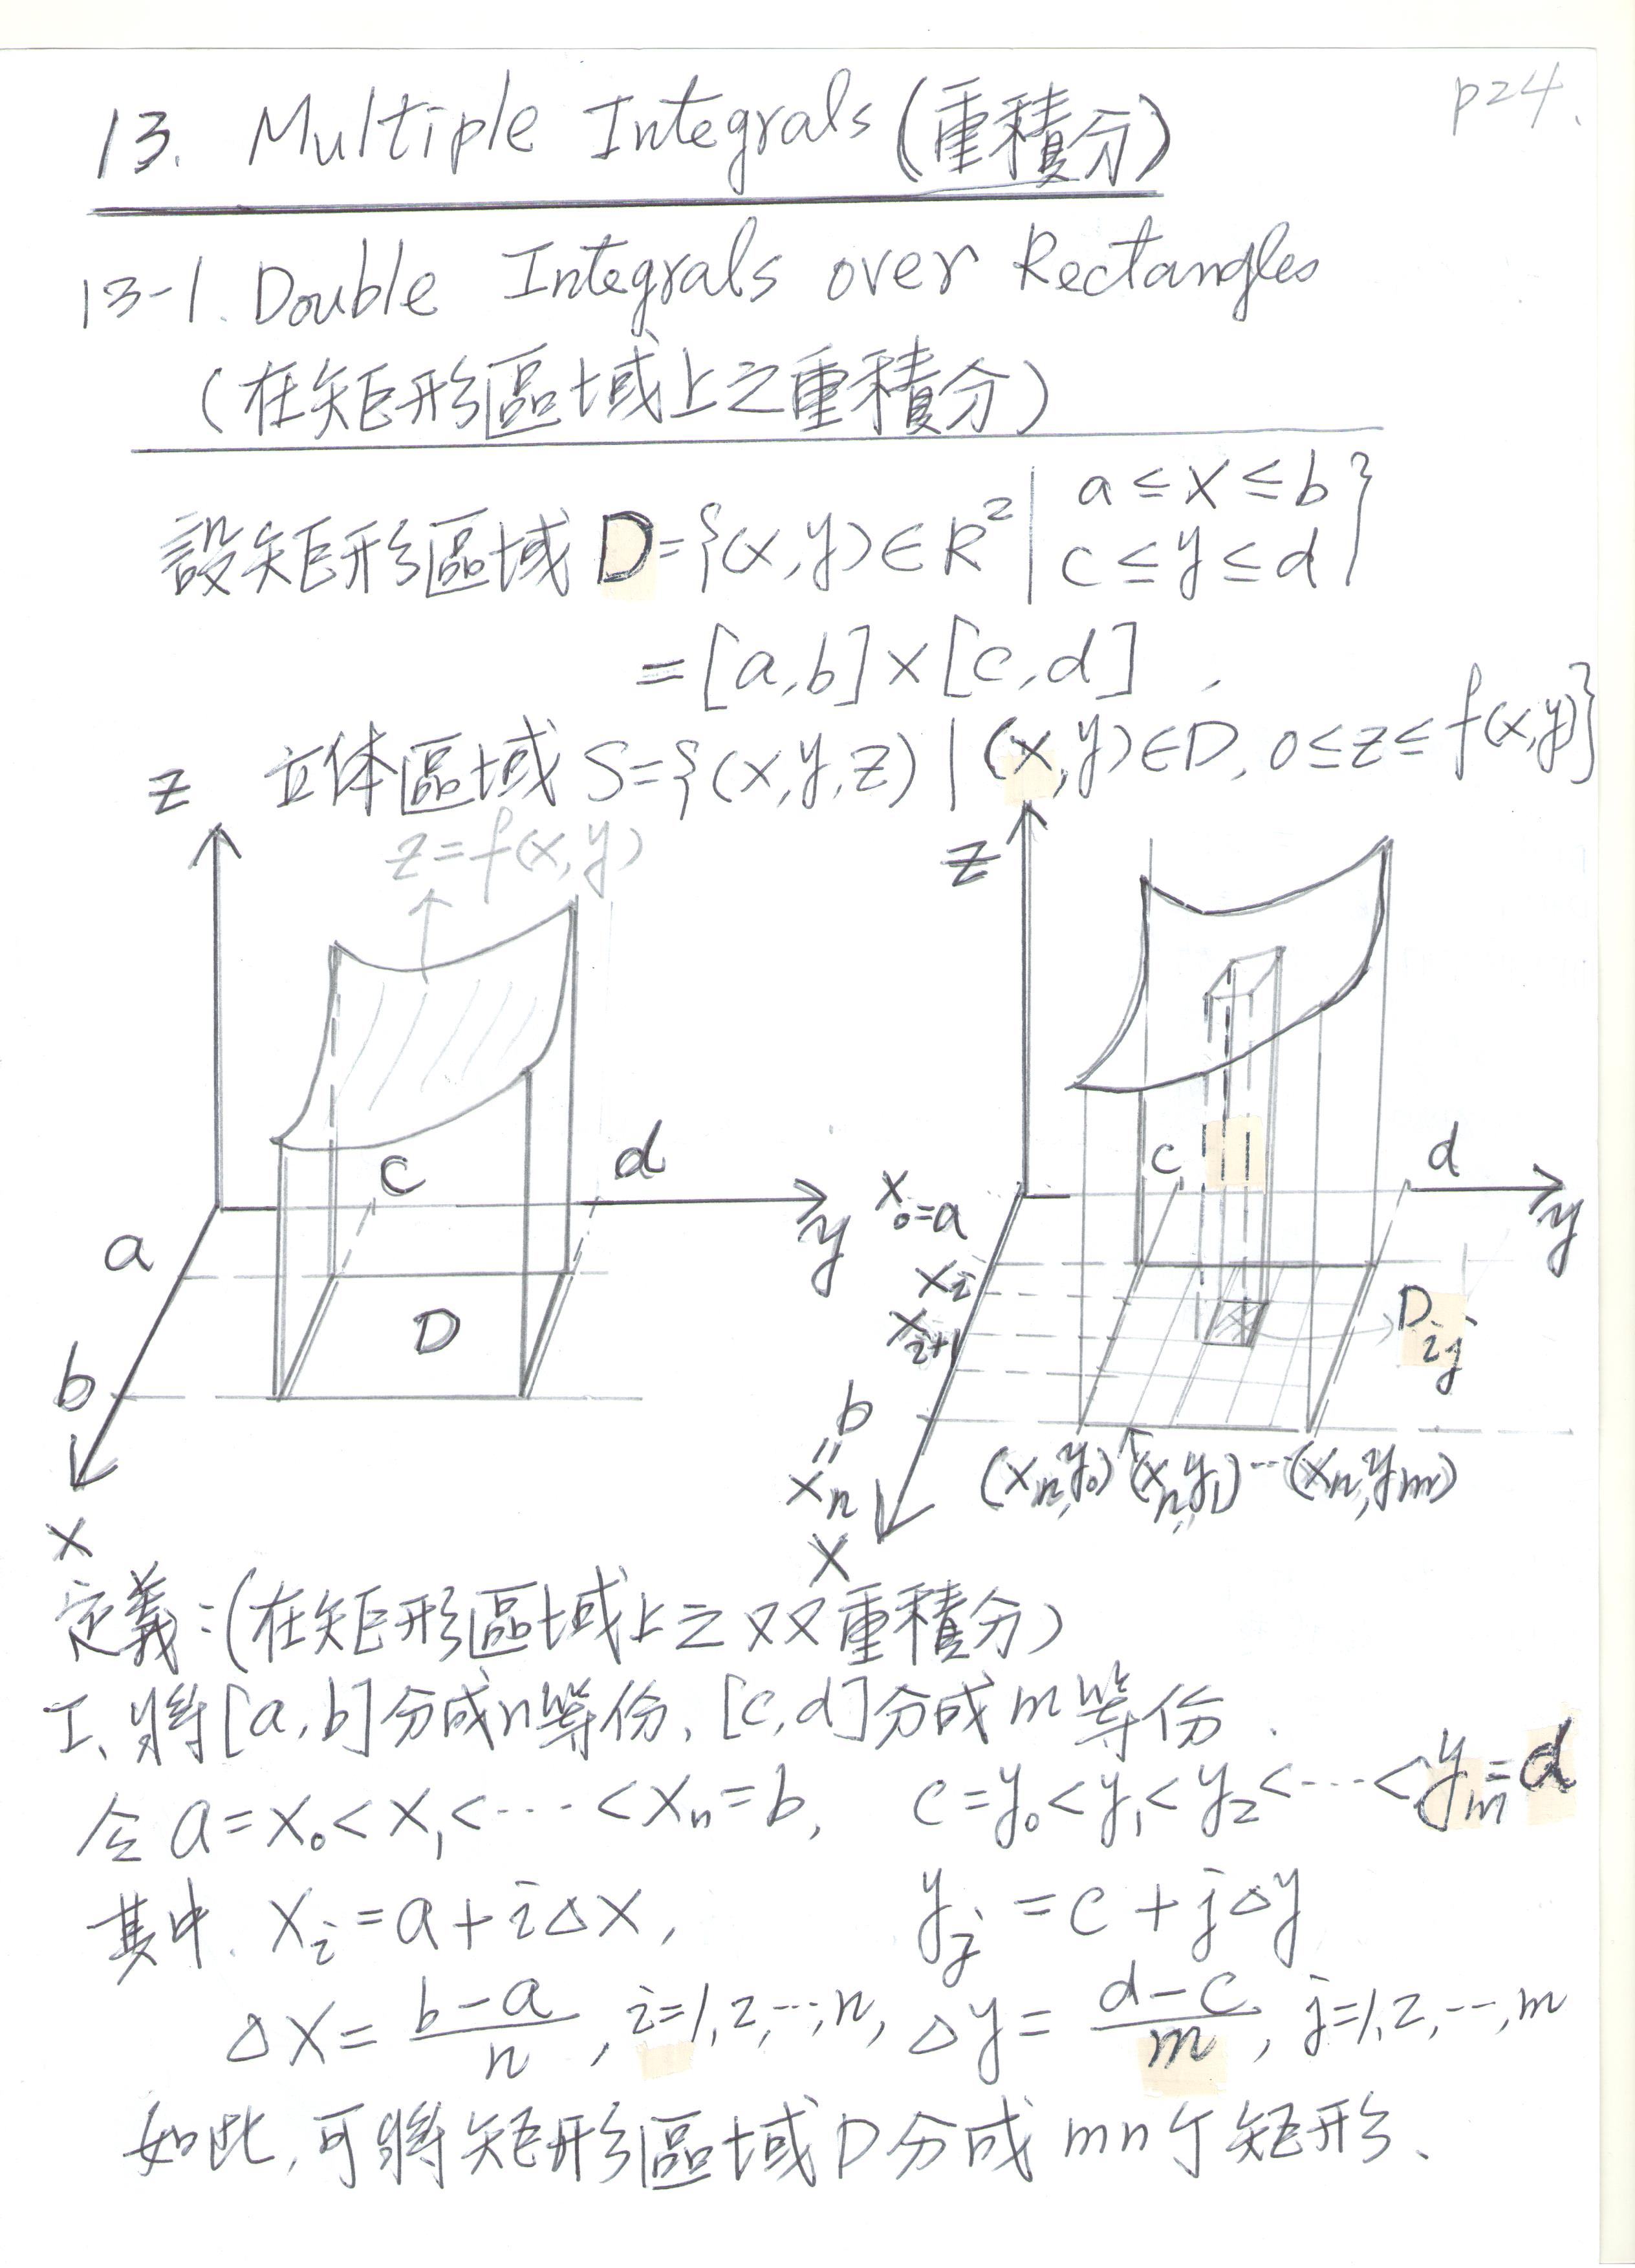 p24.
13. Multiple Integrals (重積分)
13-1. Double Integrals over Rectangles
(在矩形區域上之重積分)
設矩形區域 D={(x,y)∈R² | a≤x≤b
c≤y≤d}
=[a,b]×[c,d]
立体區域 S={(x,y,z) | (x,y)∈D, 0≤z≤f(x,y)}
z
z=f(x,y)
c
d
y
a
D
b
x
z
c
d
y
x₀=a
xᵢ
xᵢ₊₁
Dᵢⱼ
b
"
xₙ
(xₙ,y₀) (xₙ,y₁)…(xₙ,yₘ)
x
定義:(在矩形區域上之双重積分)
I、將[a,b]分成n等份、[c,d]分成m等份.
令 a=x₀<x₁<⋯<xₙ=b, c=y₀<y₁<y₂<⋯<yₘ=d
其中. xᵢ=a+iΔx, yⱼ=c+jΔy
Δx=(b-a)/n, i=1,2,…,n, Δy=(d-c)/m, j=1,2,…,m
如此,可將矩形區域D分成mn个矩形、